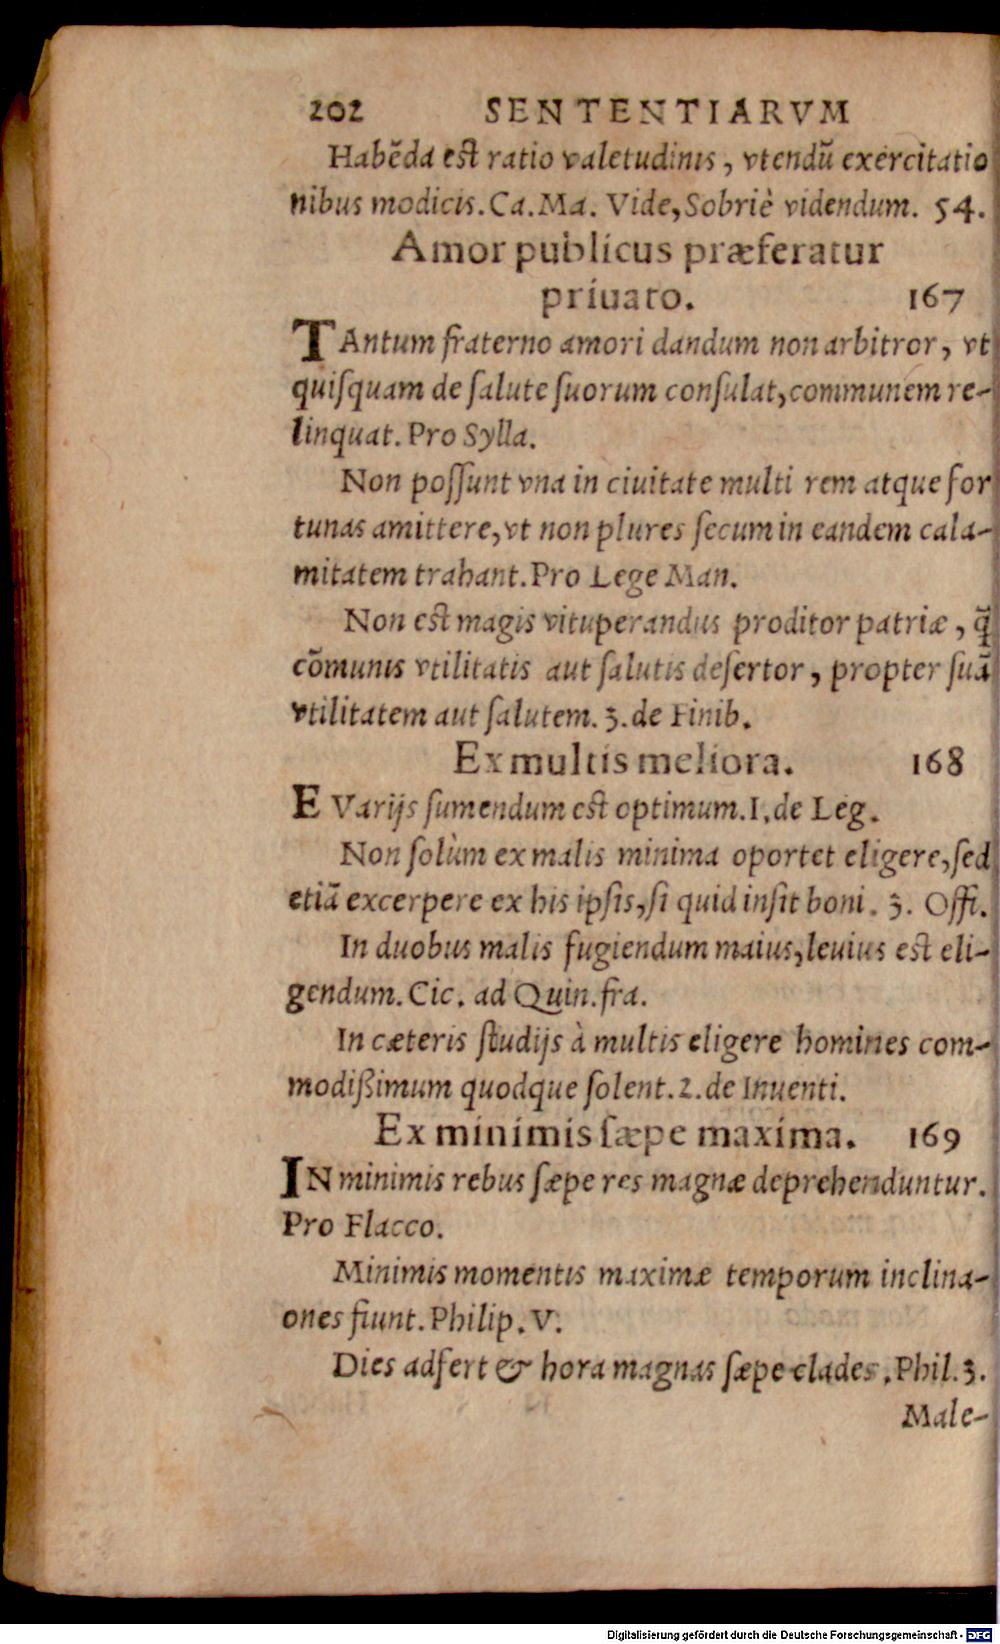 202 SENTENTIARVM
Habēda est ratio valetudinis, vtendū exercitatio
nibus modicis. Ca. Ma. Vide, Sobriè videndum. 54.
Amor publicus præferatur
priuato. 167
TAntum fraterno amori dandum non arbitror, vt
quiſquam de ſalute ſuorum conſulat, communem re-
linquat. Pro Sylla.
Non poſſunt vna in ciuitate multi rem atque for
tunas amittere, vt non plures ſecum in eandem cala-
mitatem trahant. Pro Lege Man.
Non est magis vituperandus proditor patriæ, q̄
cōmunis vtilitatis aut ſalutis deſertor, propter ſuā
vtilitatem aut ſalutem. 3. de Finib.
Ex multis meliora. 168
E Varijs ſumendum est optimum. I. de Leg.
Non ſolùm ex malis minima oportet eligere, ſed
etiā excerpere ex his ipſis, ſi quid inſit boni. 3. Offi.
In duobus malis fugiendum maius, leuius est eli-
gendum. Cic. ad Quin. fra.
In cæteris ſtudijs à multis eligere homines com-
modißimum quodque ſolent. 2. de Inuenti.
Ex minimis ſæpe maxima. 169
IN minimis rebus ſæpe res magnæ deprehenduntur.
Pro Flacco.
Minimis momentis maximæ temporum inclina-
ones fiunt. Philip. V.
Dies adfert & hora magnas ſæpe clades. Phil. 3.
Male-
Digitalisierung gefördert durch die Deutsche Forschungsgemeinschaft - DFG